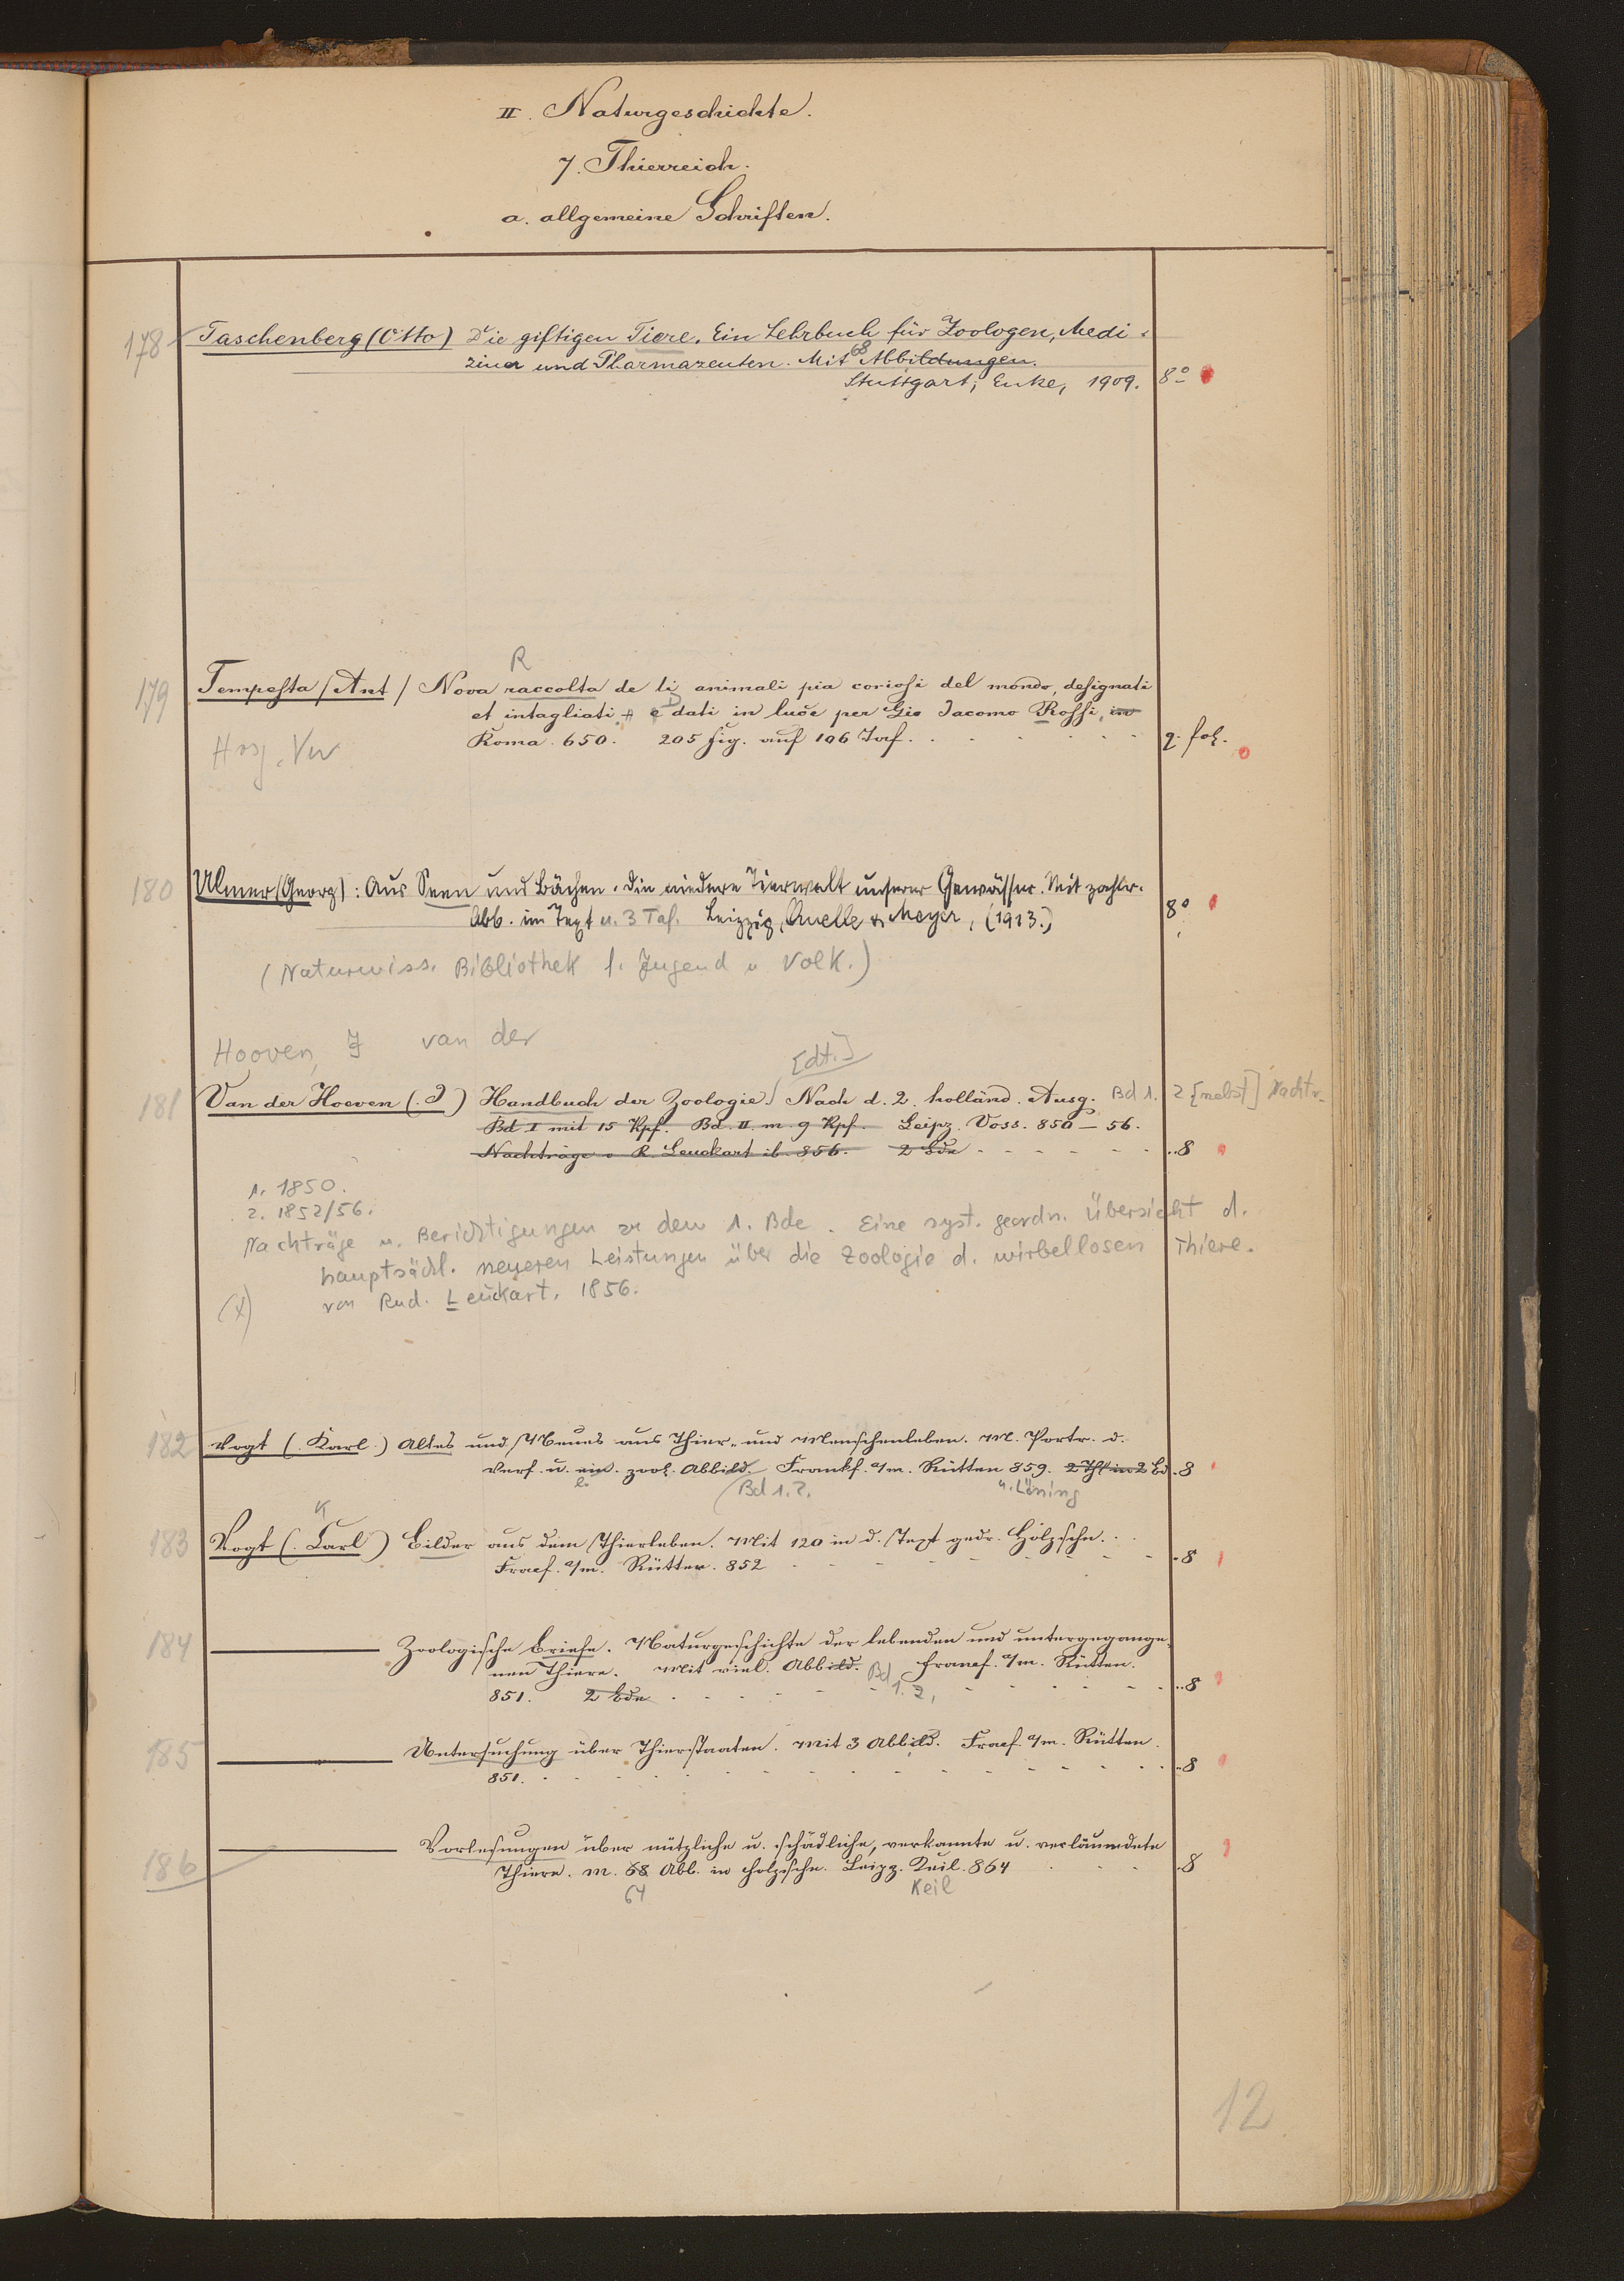 II. Naturgeschichte.
7. Thierreich.
a. allgemeine Schriften.
178 Taschenberg (Otto) Die giftigen Tiere. Ein Lehrbuch für Zoologen, Medi-
ziner und Pharmazeuten. Mit 68 Abbildungen.
Stuttgart, Enke, 1909. 8°
R
179 Tempesta / Ant / Nova raccolta de li animali pia coriosi del mondo, designati
et intagliati e dati in luce per Gio Jacomo Rossi, in
Roma. 650. 205 fig. auf 106 Taf. q. fol.
180 Ulmer (Georg): Aus Seen und Bächen. Die niedere Tierwelt unserer Gewässer. Mit zahlr.
Abb. im Text u. 3 Taf. Leipzig, Quelle & Meyer, (1913.) 8°
(Naturwiss. Bibliothek f. Jugend u Volk.)
Hooven, J van der
[dt.]
181 Van der Hoeven (. J) Handbuch der Zoologie. Nach d. 2. holländ. Ausg. Bd 1. 2 [nebst] Nachtr.
Bd I mit 15 Kpf. Bd. II. m. 9 Kpf. Leipz. Voss. 850 – 56.
Nachträge v R. Leuckart ib. 856. 2 Bde ..8
1. 1850.
2. 1852/56.
Nachträge u. Berichtigungen zu dem 1. Bde. Eine syst. geordn. Übersicht d.
hauptsächl. neueren Leistungen über die Zoologie d. wirbellosen Thiere.
von Rud. Leuckart. 1856.
(X)
182 Vogt (. Karl.) Altes und Neues aus Thier- und Menschenleben. M. Portr. d.
Verf. u. ein. zool. Abbild. Frankf. a/m. Rütten 859. 2 Thl in 2 Bd .8
Bd 1. 2. u. Löning
K
183 Vogt (. Carl) Bilder aus dem Thierleben. Mit 120 in d. Text gedr. Holzschn.
Francf. a/m. Rütten. 852 .8
184 Zoologische Briefe. Naturgeschichte der lebenden und untergegange-
nen Thiere. Mit viel. Abbild. Francf. a/m. Rütten.
851. 2 Bde Bd 1. 2, ..8
185 Untersuchung über Thierstaaten. Mit 3 Abbild. Francf. a/m. Rütten.
851. ..8
186 Vorlesungen über nützliche u. schädliche, verkannte u. verläumdete
Thiere. M. 68 Abb. in Holzschn. Leipz. Keil. 864 .8
64 Keil
12